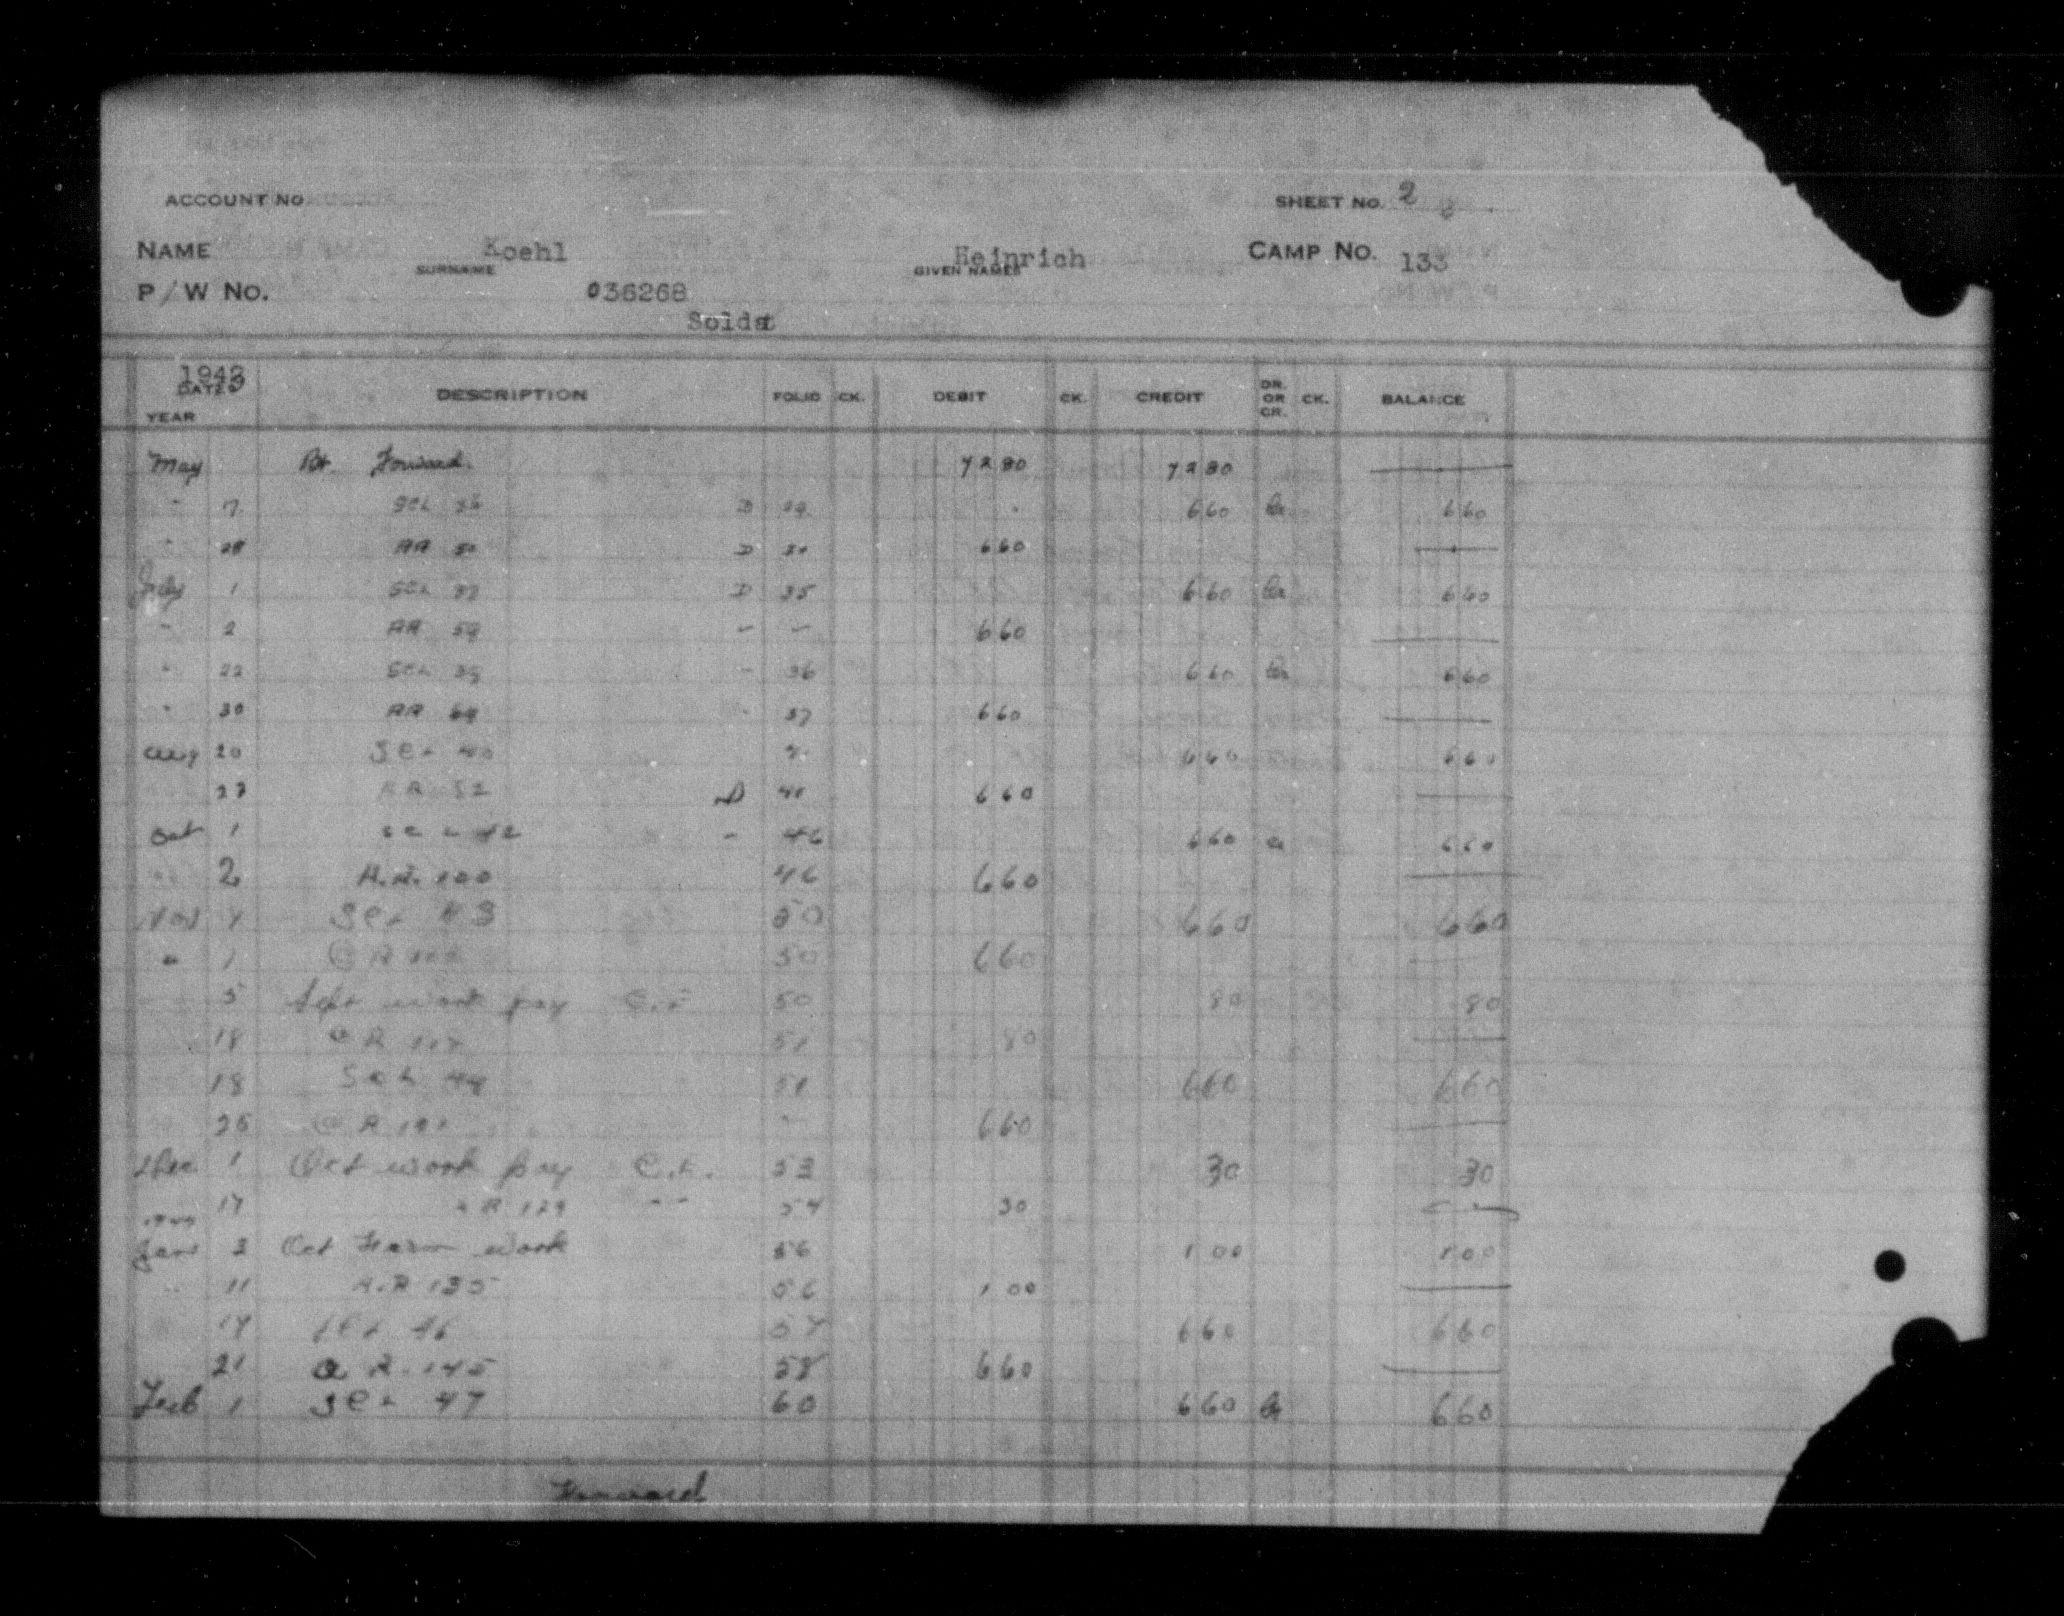 ACCOUNT NO
SHEET NO. 2
NAME Koehl Heinrich CAMP NO. 133
SURNAME GIVEN NAMES
P/W NO. 036268
Soldat
DATE DESCRIPTION FOLIO CK. DEBIT CK. CREDIT DR. OR CR. CK. BALANCE
YEAR
May Bt. Forward. 7280 7280 —
" 7 D 660 Cr 660
" 28 AR D 660 —
July 1 SCL 37 D 35 660 Cr 660
" 2 AR 59 - - 660 —
" 22 SCL 39 - 36 660 Cr 660
" 30 AR 69 - 37 660 —
Aug 20 SCL 40 660 660
27 AR D 41 660 —
Oct 1 SCL 42 - 46 660 Cr 660
2 A.R. 100 46 660 —
Nov SCL 43 50 660 660
" 1 AR 50 660 —
5 Sept work pay 50 80 80
18 AR 51 80 —
18 SCL 44 51 660 660
AR - 660 —
Dec 1 Oct work pay 53 30 30
17 AR 129 54 30 —
Jan 3 Oct Farm work 56 1 00 1 00
11 A.R 135 56 1 00 —
SCL 46 57 660 660
21 A R. 145 58 660 —
Feb 1 SCL 47 60 660 Cr 660
Forward